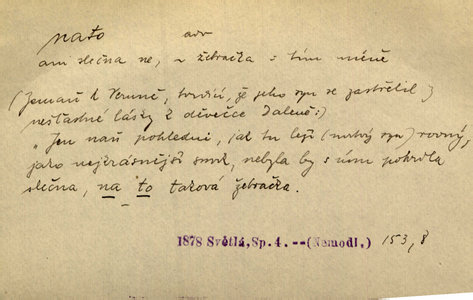 nato adv
ani slečna ne, n žebračka s tím méně
(Zeman k Veruně, tvrdíc, že jeho syn se zastřelil z
nešťastné lásky k děvečce Daleně:)
„Jen naň pohledni, jak tu leží (mrtvý syn) rovný,
jako nejkrásnější smrk, nebyla by s ním pohrdla
slečna, na to taková žebračka.
1878 Světlá, Sp. 4. -- (Nemodl.) 153, 8